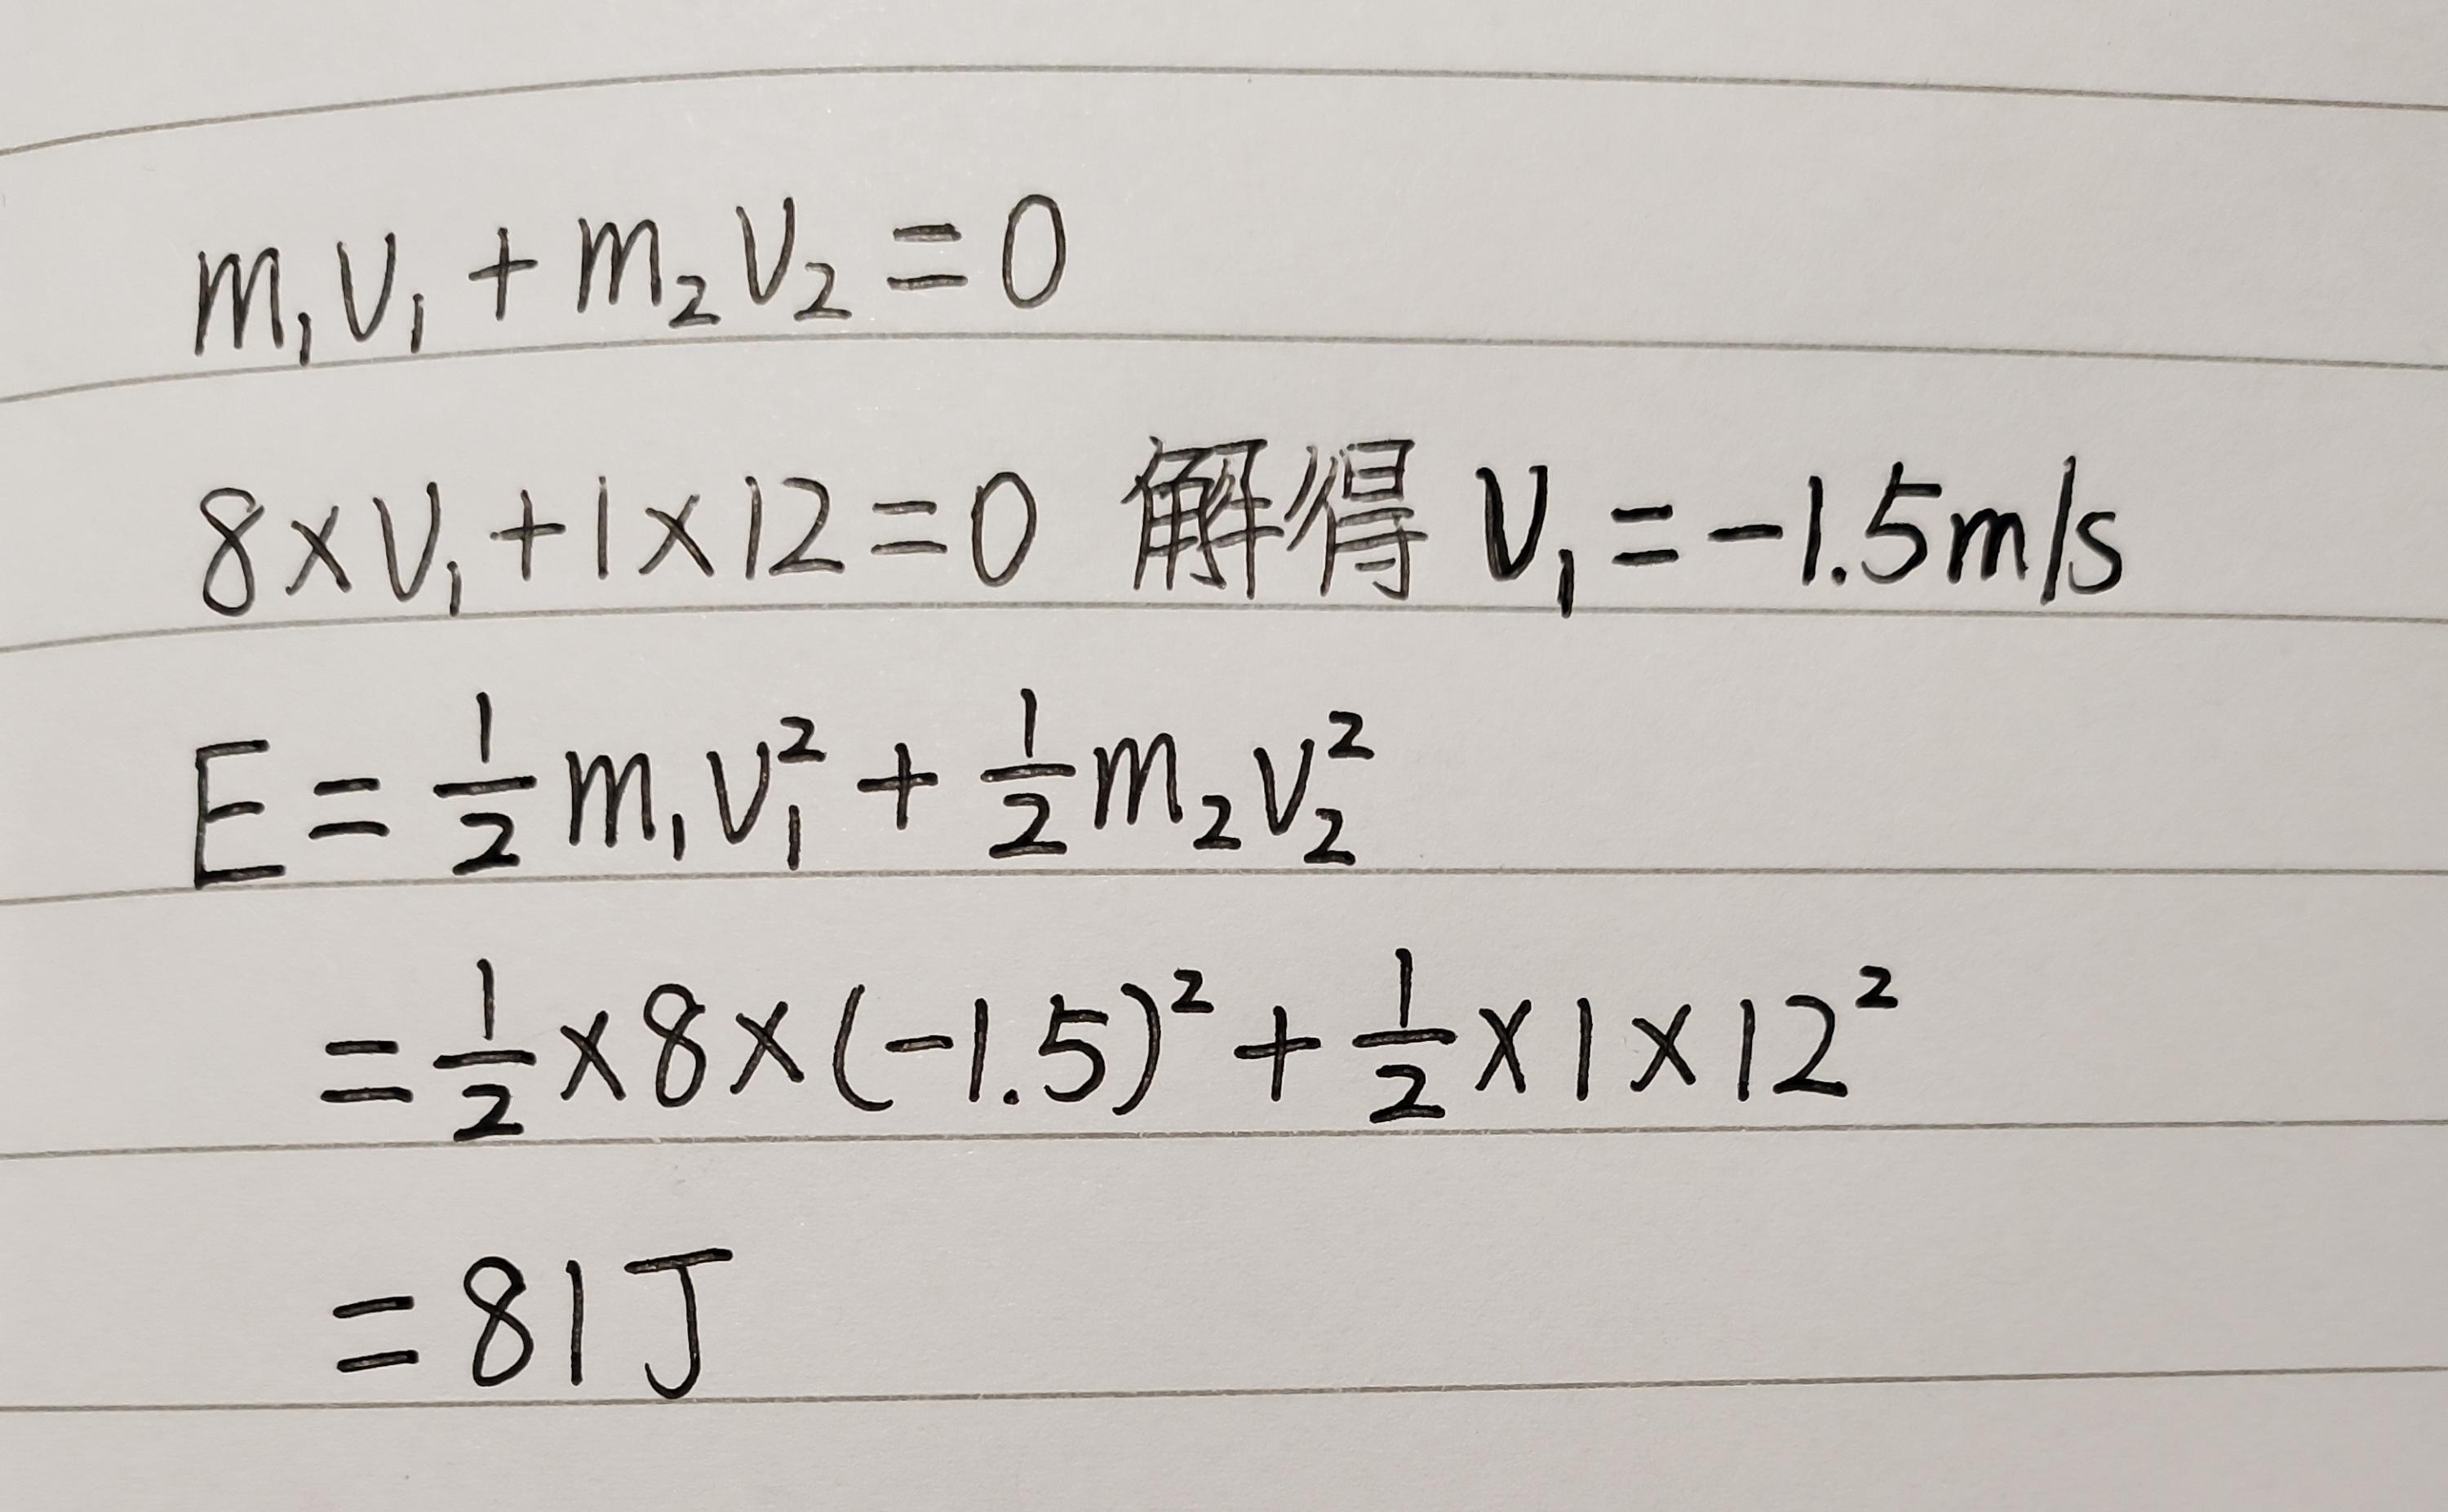 m₁v₁ + m₂v₂ = 0
8×v₁ + 1×12 = 0 解得 v₁ = -1.5m/s
E = 1/2 m₁v₁² + 1/2 m₂v₂²
= 1/2 × 8 × (-1.5)² + 1/2 × 1 × 12²
= 81J